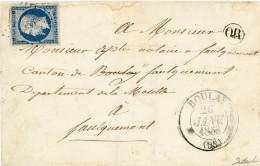 A Monsieur
OR
Monsieur notaire à faulquemont
Canton de Boulay faulquemont
Département de la Moselle
à
faulquemont
BOULAY
26
JANV
(55)